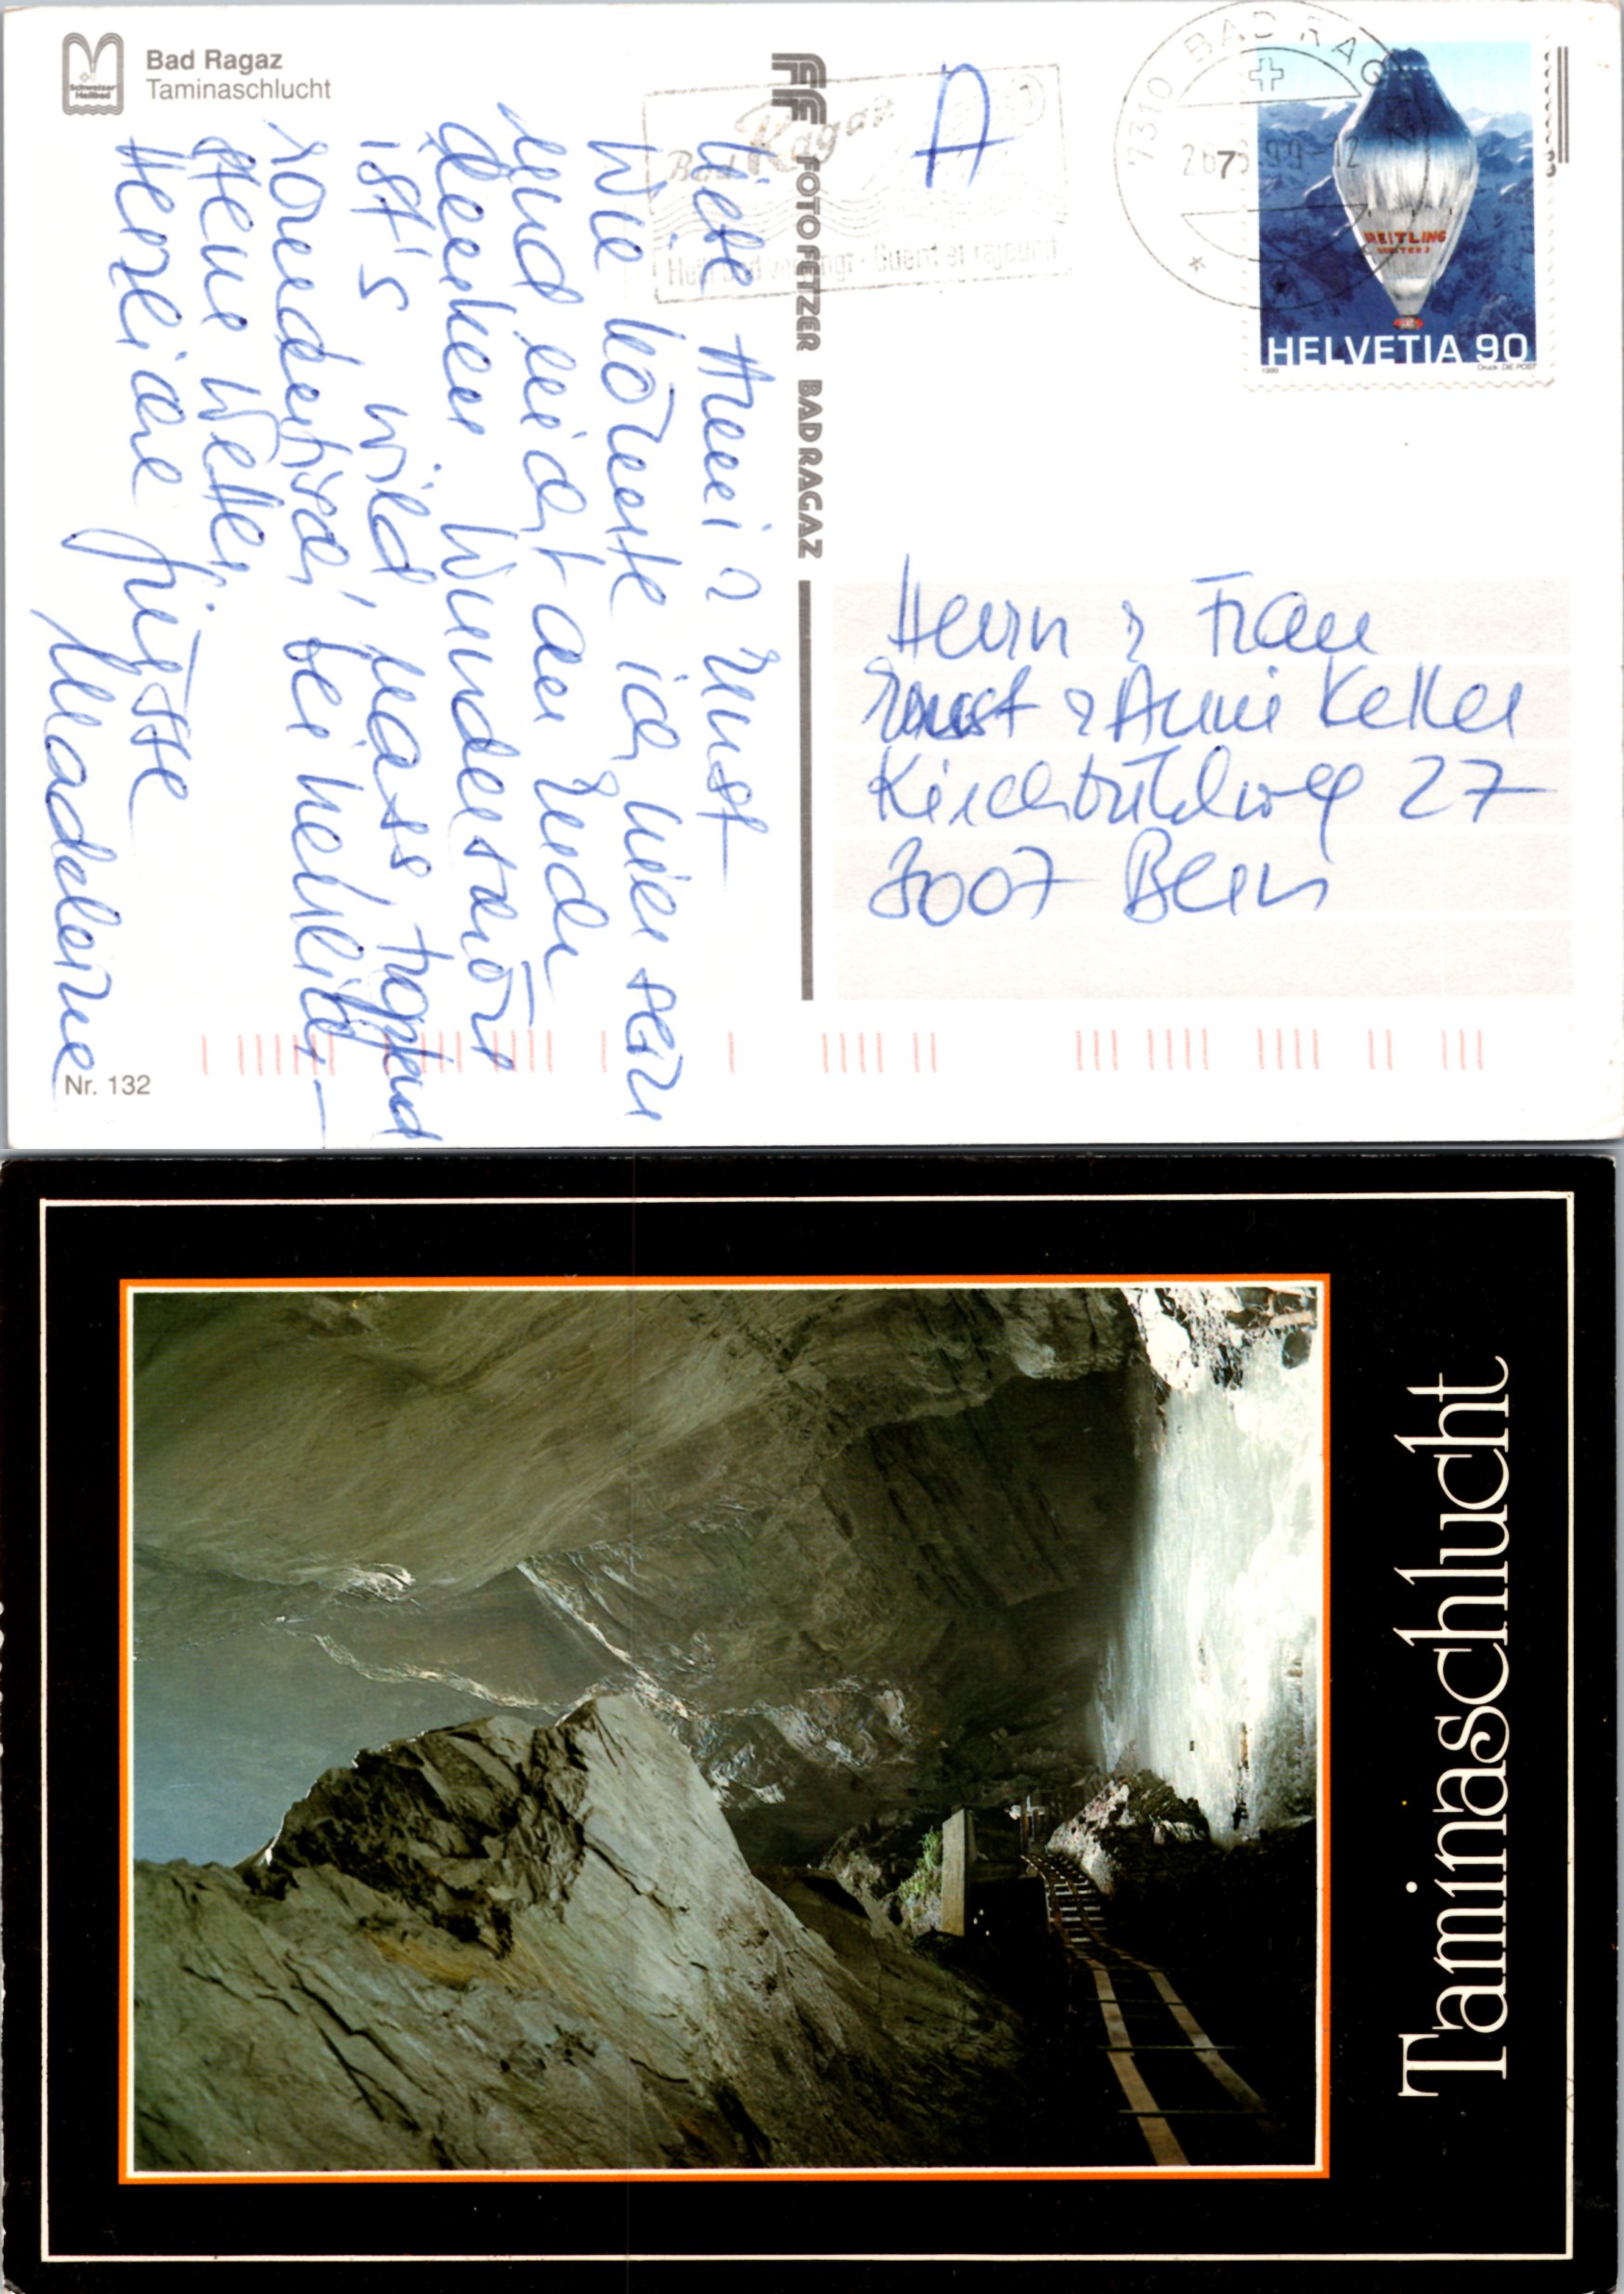 Schweizer
Heilbad
Bad Ragaz
Taminaschlucht
Liebe Anni & Ernst
Wie könnte ich hier sein
und nicht an Euch
denken. Wunderschön
ist's wild, nass, tropfend
romantisch, bei herrlich-
stem Wetter.
Herzliche Grüsse
Madeleine
Nr. 132
FF FOTO FETZER BAD RAGAZ
A
Bad Ragaz
Heilt und verjüngt - Guérit et rajeunit
7310 BAD RAGAZ
99-12
7
BREITLING
ORBITER 3
HELVETIA 90
1999
Druck DIE POST
Herrn & Frau
Ernst & Anni Keller
Kirchbühlweg 27
3007 Bern
Taminaschlucht